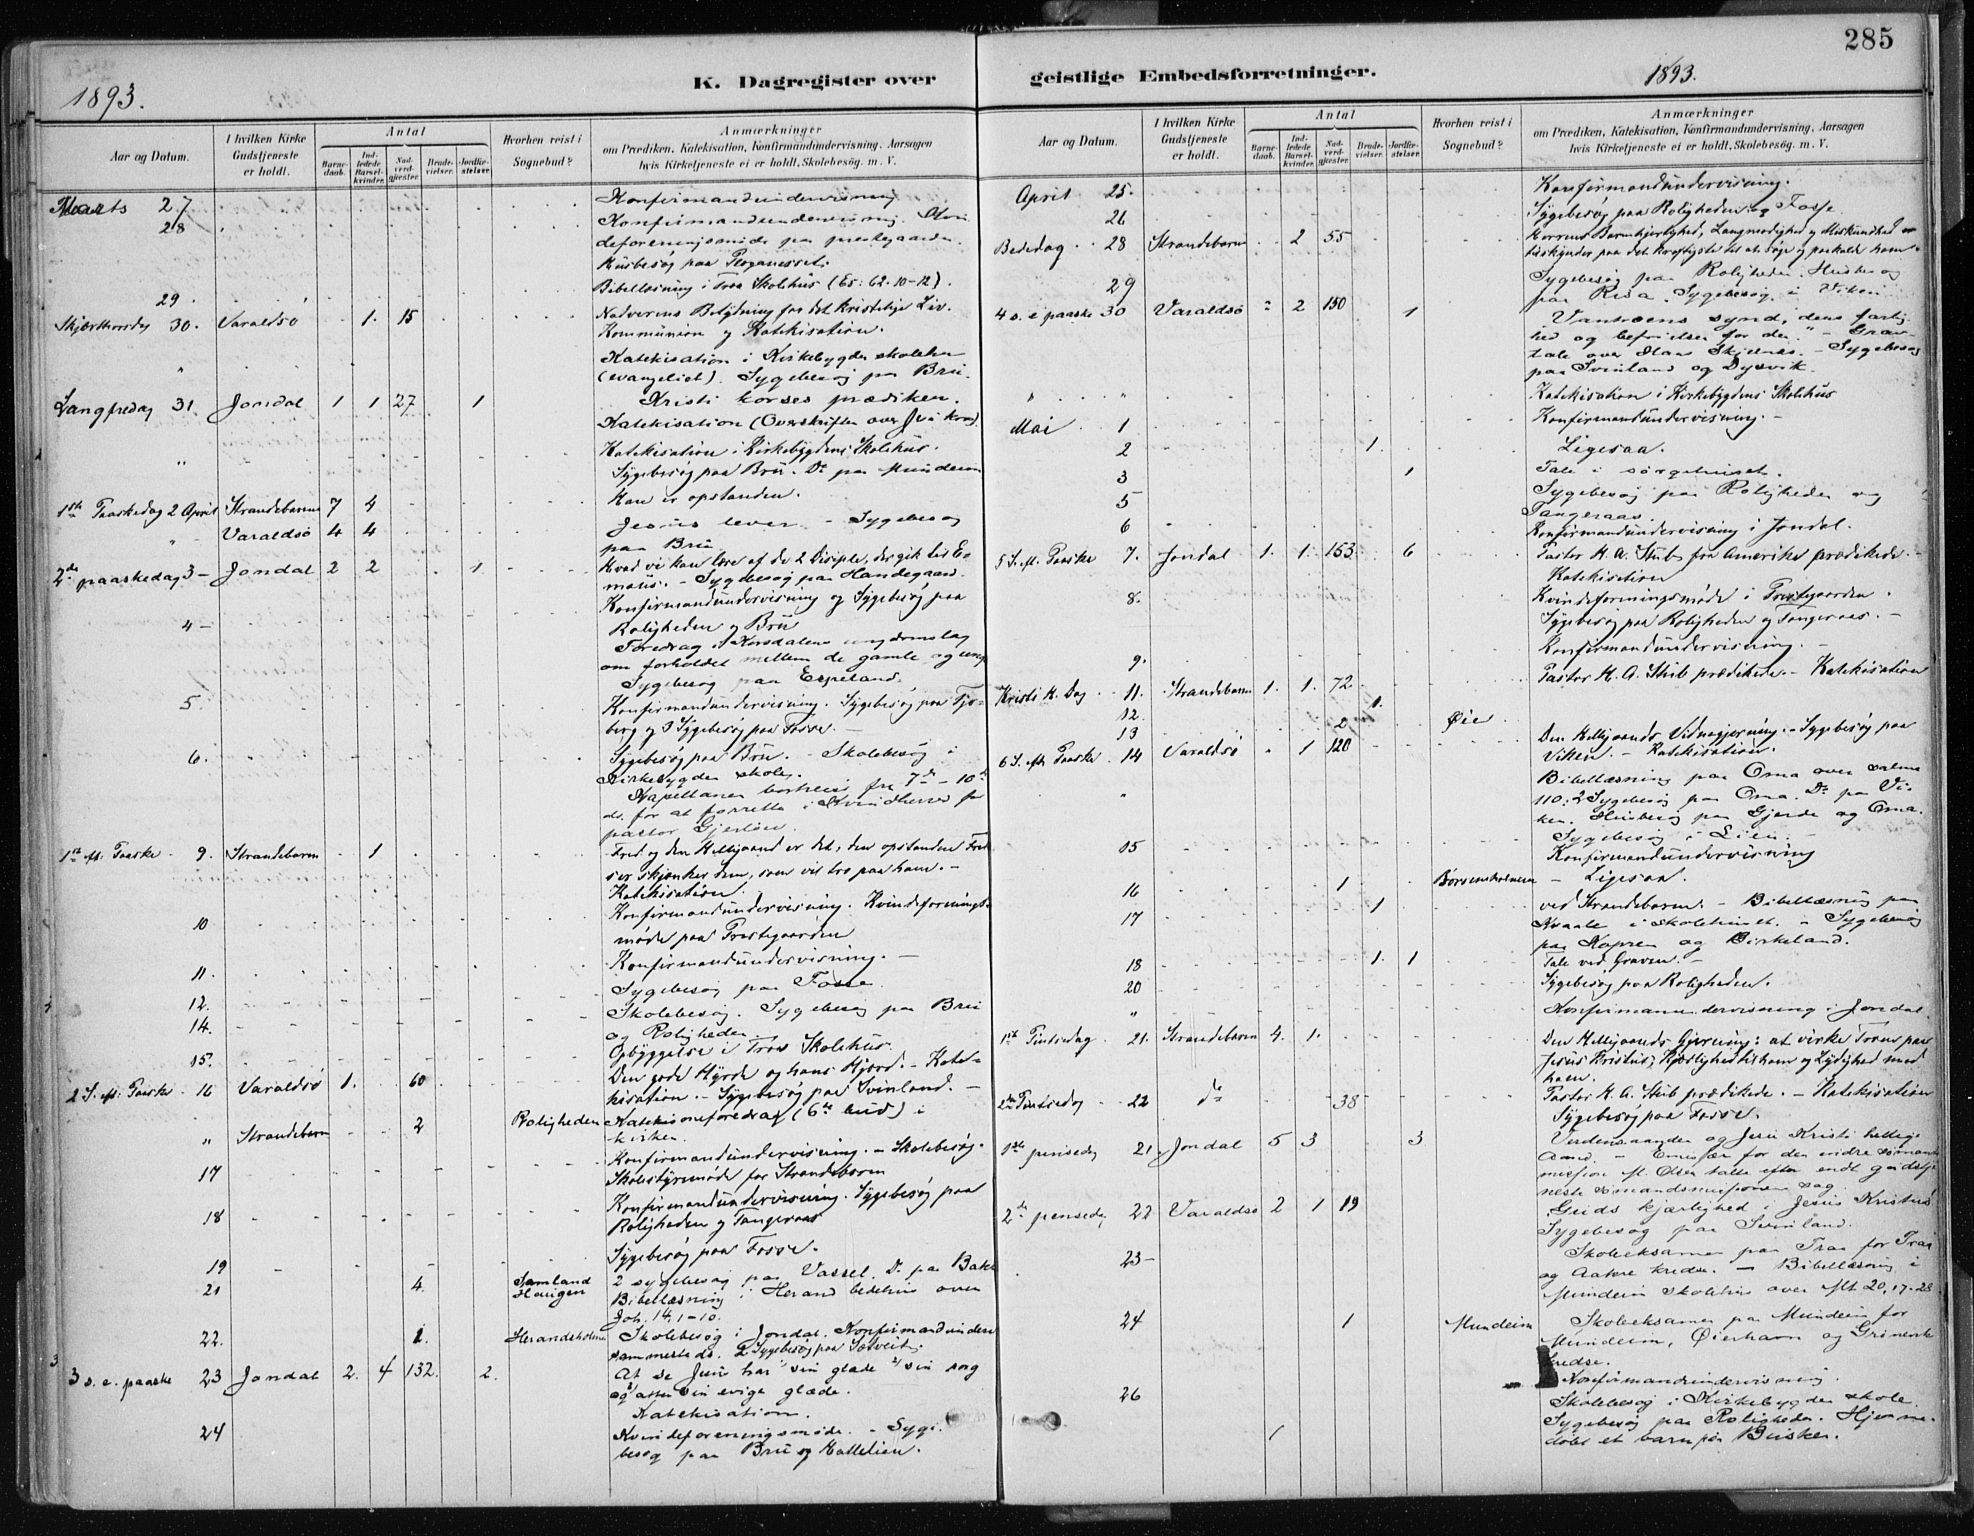 285
K. Dagregister over geistlige Embedsforretninger.
1893.
1893.
Aar og Datum.
I hvilken Kirke Gudstjeneste er holdt.
Antal
Barnedaab.
Indledede Barselkvinder.
Nadverdgjester.
Brudevielser.
Jordfæstelser.
Hvorhen reist i Sognebud?
Anmærkninger
om Prædiken, Katekisation, Konfirmandundervisning, Aarsagen
hvis Kirketjeneste ei er holdt, Skolebesög m. V.
Marts 27 Konfirmandundervisning
28 Konfirmandundervisning.
deforeningsmøde paa prestegaarden.
Husbesøg paa
29 Bibellæsning i Traa Skolhus (Es: 62. 10-12).
Skjærthorsdag 30. Varaldsø 1. 15 Nadverens Betydning for det kristelige Liv.
Kommunion og Katekisation.
" Katekisation i Kirkebygdens skolehus
(evangeliet). Sygebesøg paa Bru.
Langfredag 31 Jondal 1 1 27 1 Kristi korses prædiken.
Katekisation (Overskriften over Jesu kors)
" Katekisation i Kirkebygdens Skolehus.
Sygebesøg paa Bru. Do paa Mundeim
1ste Paaskedag 2 April Strandebarm 7 4 Han er opstanden.
" Varaldsø 4 4 Jesus lever. - Sygebesøg
paa Bru
2den paaskedag 3 - Jondal 2 2 1 Hvad vi kan lære af de 2 Disiple, der gik til Emaus. - Sygebesøg paa Handegaard.
4 - Konfirmandundervisning og Sygebesøg paa
Roligheden og Bru
Foredrag i Norsdalens ungdomslag
om forholdet mellem de gamle og unge
Sygebesøg paa Espeland.
5 Konfirmandundervisning. Sygebesøg paa
berg og 3 Sygebesøg paa Fosse. -
6. Sygebesøg paa Bru. - Skolebesøg i
Kirkebygdens skole.
Kapellanen bortreist fra 7de - 10de
ds. for at forrette i Kvindherred for
pastor Gjerløw.
1ste eft. Paaske 9. Strandebarm 1 Fred og den Helligaand er det, den opstandne Frelser skjænker dem, som vil tro paa ham. -
Katekisation.
10 Konfirmandundervisning. Kvindeforeningsmøde paa Prestegaarden
11. Konfirmandundervisning. -
12. Sygebesøg paa Fosse.
14. Skolebesøg. Sygebesøg paa Bru
og Roligheden
15. Opbyggelse i Traa Skolhus.
2 S. eft. Paaske 16 Varaldsø 1. 60 Den gode Hyrde og hans Hjord. - Katekisation. - Sygebesøg paa Svinland. -
" Strandebarm 2 Roligheden Katekismeforedrag (6te bud) i
kirken.
17 Konfirmandundervisning. - Skolebesøg.
Skolestyremøde for Strandebarm
18 Konfirmandundervisning. Sygebesøg paa
Roligheden og Tangeraas
19 Sygebesøg paa Fosse.
21 4. Samland Haugen 2 sygebesøg paa Vassel. Do paa Bakke
Bibellæsning i Herand bedehus over
Joh. 14, 1-10.
22. 1. Herandsholmen Skolebesøg i Jondal. Konfirmandunderv.
sammesteds. 2 Sygebesøg paa Sætveit.
3 s. e. paaske 23 Jondal 2. 4 132. 2. At se Jesus har sin glæde, sin sorg
og atter sin evige glæde.
Katekisation.
24 Kvindeforeningsmøde. - Sygebesøg paa Bru og Hattelien.
Aar og Datum.
I hvilken Kirke Gudstjeneste er holdt.
Antal
Barnedaab.
Indledede Barselkvinder.
Nadverdgjester.
Brudevielser.
Jordfæstelser.
Hvorhen reist i Sognebud?
Anmærkninger
om Prædiken, Katekisation, Konfirmandundervisning, Aarsagen
hvis Kirketjeneste ei er holdt, Skolebesög. m. V.
April 25. Konfirmandundervisning.
26 Sygebesøg paa Roligheden og Fosse
Bededag 28 Strandebarm 2 55 Herrens Barmhjertighed, Langmodighed og Miskundhed
tilskynder paa det kraftigste til at søge og paakalde ham
29 Sygebesøg paa Roligheden. Husbesøg
paa Risa. Sygebesøg i Viken
4 s. e paaske 30 Varaldsø " 2 150 1 Vantroens synd, dens farlighed og befrielsen for den." - Gravtale over Skjelnes. - Sygebesøg
paa Svinland og Dysvik.
" " Katekisation i Kirkebygdens Skolehus
Mai 1 Konfirmandundervisning. -
2 1. Ligesaa.
3 1 Tale i sørgehuset.
5 Sygebesøg paa Roligheden og
Tangeraas
6 Konfirmandundervisning i Jondal.
5 S. eft. Paaske 7. Jondal 1. 1. 153 6 Pastor H. A. Stub fra Amerika prædikede
Katekisation
8. Kvindeforeningsmøde i Prestegaarden.
Sygebesøg paa Roligheden og Tangeraas. -
9. Konfirmandundervisning. -
Kristi H. Dag 11. Strandebarm 1. 1. 72 Pastor H. A. Stub prædikede. - Katekisation
12. 1.
13 2 Øie
6 S. eft Paaske 14 Varaldsø " 1 120 Den Helligaands Vidnegjerning. - Sygebesøg paa
Viken. - Katekisation.
" Bibellæsning paa Oma over salme
110: 2 Sygebesøg paa Oma. Do paa Viken. Husbesøg paa Gjerde og Oma.
Sygebesøg i Lien.
15 Konfirmandundervisning
16 1 Borsensholmen - Ligesaa.
17 1 ved Strandebarm. - Bibellæsning paa
Kvaale i skolehuset. - Sygebesøg
paa og Birkeland.
18 1. 1 Tale ved Graven. -
20 Sygebesøg paa Roligheden.
" Konfirmandundervisning i Jondal
1ste Pintsedag 21. Strandebarm 4. 1. Den Helligaands Gjerning: at virke Troen paa
Jesus Kristus, Kjærlighed til ham og Lydighed mod
ham.
2den Pintsedag 22 do 38 Pastor H. A. Stub prædikede. - Katekisation
Sygebesøg paa Fosse.
1ste pinsedag 21. Jondal 5 3 3 Verdensaanden og Jesu Kristi hellige
Aand. - Emissær for den indre sømandsmission M. Olsen talte efter endt gudstjeneste sømandsmissionens sag.
2den pinsedag 22 Varaldsø 2 1 19 Guds kjærlighed i Jesus Kristus
Sygebesøg paa Svinland.
23 - Skoleeksamen paa Traa for Traa
og Aakre kredse. - Bibellæsning i
Mundeim Skolehus over Mt 20, 17-28
24 1 Mundeim Skoleeksamen paa Mundeim for
Mundeim, Øierhavn og
kredse.
Konfirmandundervisning.
26 Skolebesøg i Kirkebygdens skole
Sygebesøg paa Roligheden. Hjemmedøbt et barn paa Busken.
1